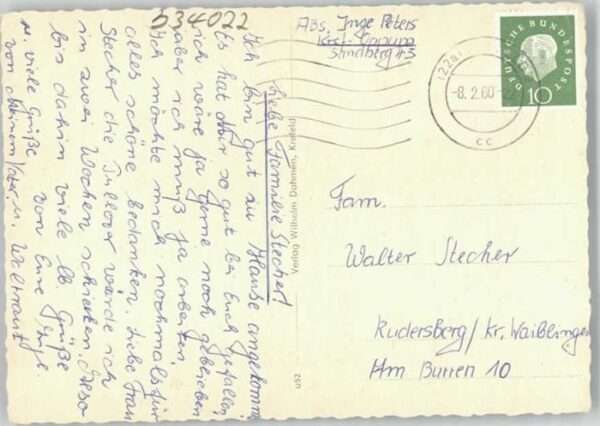 534022
Abs. Inge Peters
Kref.-Oppum
Steinberg 43
DEUTSCHE BUNDESPOST
10
(22a)
-8.2.60
cc
Liebe Familie Stecher!
Ich bin gut zu Hause angekommen
Es hat mir so gut bei Euch gefallen,
ich wäre ja gerne noch geblieben
aber ich muß ja arbeiten.
Ich möchte mich nochmals für
alles schöne bedanken. Liebe Frau
Stecher die Pullover werde ich
in zwei Wochen schicken. Also
bis dahin viele lb Grüße
von Eure Inge.
u. viele Grüße
von meinem Vater u. Waltraut
Verlag Wilhelm Dahmen, Krefeld
Fam.
Walter Stecher
Rudersberg/kr. Waiblingen
Am Burren 10